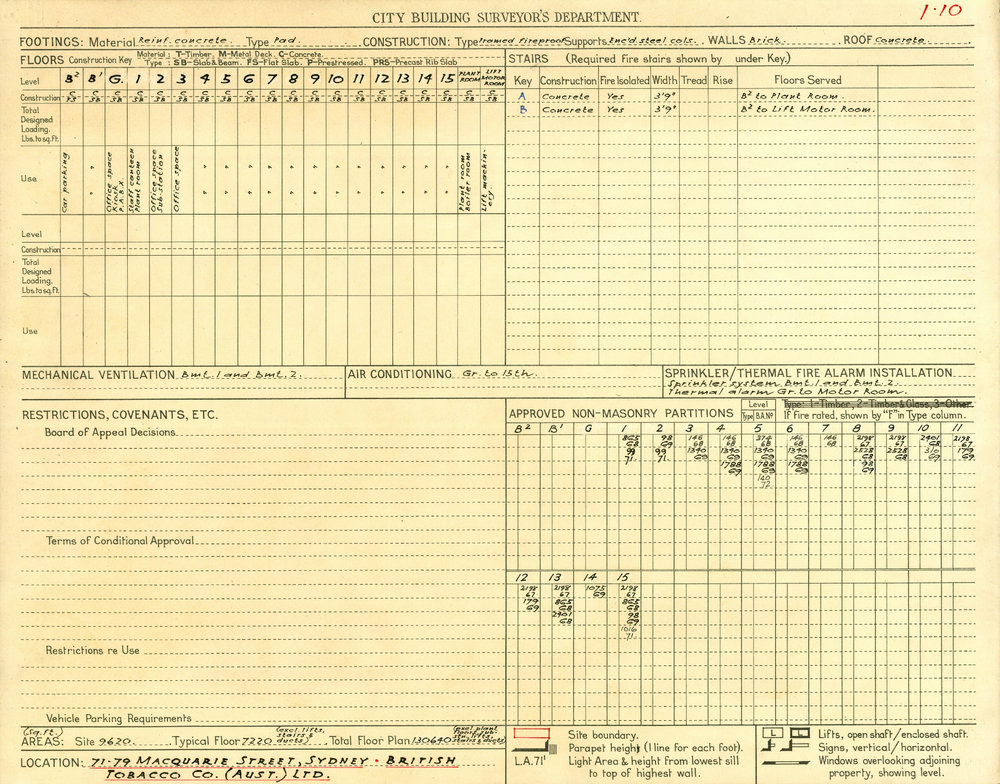 CITY BUILDING SURVEYOR'S DEPARTMENT.
1·10
FOOTINGS: Material Reinf. concrete Type Pad. CONSTRUCTION: Type framed fireproof Supports Enc'd steel cols. WALLS Brick. ROOF Concrete.
FLOORS Construction Key Material: T-Timber, M-Metal Deck, C-Concrete.
Type: SB-Slab & Beam. FS-Flat Slab. P-Prestressed. PRS-Precast Rib Slab
Level B² B' G. 1 2 3 4 5 6 7 8 9 10 11 12 13 14 15 PLANT ROOM LIFT MOTOR ROOM
Construction C FS C SB C SB C SB C SB C SB C SB C SB C SB C SB C SB C SB C SB C SB C SB C SB C SB C SB C SB C SB
Total Designed Loading. Lbs. to sq. ft.
Use
Car parking
"
"
Office space Kiosk P.A.B.X.
Staff canteen Plant room
Office space Sub-station
Office space
" " " " " " " " " " " "
" " " " " " " " " " " "
Plant room Boiler room
Lift machinery.
Level
Construction
Total Designed Loading. Lbs. to sq. ft.
Use
STAIRS (Required Fire stairs shown by under Key.)
Key Construction Fire Isolated Width Tread Rise Floors Served
A Concrete Yes 3'9" B² to Plant Room.
B Concrete Yes 3'9" B² to Lift Motor Room.
MECHANICAL VENTILATION Bmt. 1 and Bmt. 2.
AIR CONDITIONING Gr. to 15th.
SPRINKLER/THERMAL FIRE ALARM INSTALLATION
Sprinkler system Bmt. 1 and Bmt. 2.
Thermal alarm Gr. to Motor Room.
RESTRICTIONS, COVENANTS, ETC.
Board of Appeal Decisions
Terms of Conditional Approval
Restrictions re Use
Vehicle Parking Requirements
APPROVED NON-MASONRY PARTITIONS
Level
Type B.A.Nº
Type: 1-Timber, 2-Timber & Glass, 3-Other.
If fire rated, shown by "F" in Type column.
B² B' G 1 2 3 4 5 6 7 8 9 10 11
865 98 146 146 374 146 146 2198 2198 2401 2198
68 69 68 68 68 68 68 67 67 68 67
99 99 1340 1340 1340 1340 2528 2528 310 179
71 71 69 69 69 69 68 68 69 69
1788 1788 1788 98
69 69 69 69
140
72
12 13 14 15
2198 2198 1075 2198
67 67 69 67
179 865 865
69 68 68
2401 2401
68 68
1016
71
AREAS: (sq. ft.) Site 9620. Typical Floor 7220 (excl. lifts, stairs & ducts) Total Floor Plan 130640
LOCATION: 71-79 MACQUARIE STREET, SYDNEY · BRITISH
TOBACCO Co. (AUST.) LTD.
Site boundary.
Parapet height (1 line for each foot).
L.A. 71' Light Area & height from lowest sill
to top of highest wall.
L Lifts, open shaft/enclosed shaft.
Signs, vertical/horizontal.
Windows overlooking adjoining
property, showing level.